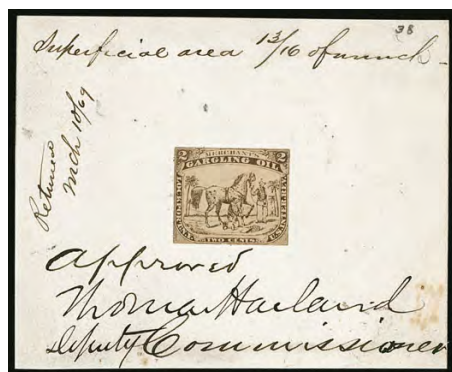 38
Superficial area 13/16 of an inch
Returned
Mch 10/69
2 MERCHANT'S 2
GARGLING OIL
LOCKPORT N.Y.
TWO CENTS
Approved
Thomas Harland
Deputy Commissioner